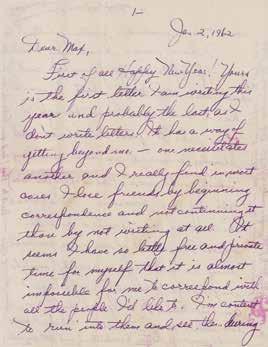 1-
Jan 2, 1962
Dear Max,
First of all Happy New Year! Yours
is the first letter I am writing this
year and probably the last, as I
dont write letters. It has a way of
getting beyond me. — one necessitates
another and I really find in most
cases I lose friends by beginning
correspondence and not continuing it
than by not writing at all. It
seems I have so little free and private
time for myself that it is almost
impossible for me to correspond with
all the people I'd like to. I'm content
to run into them and see them during